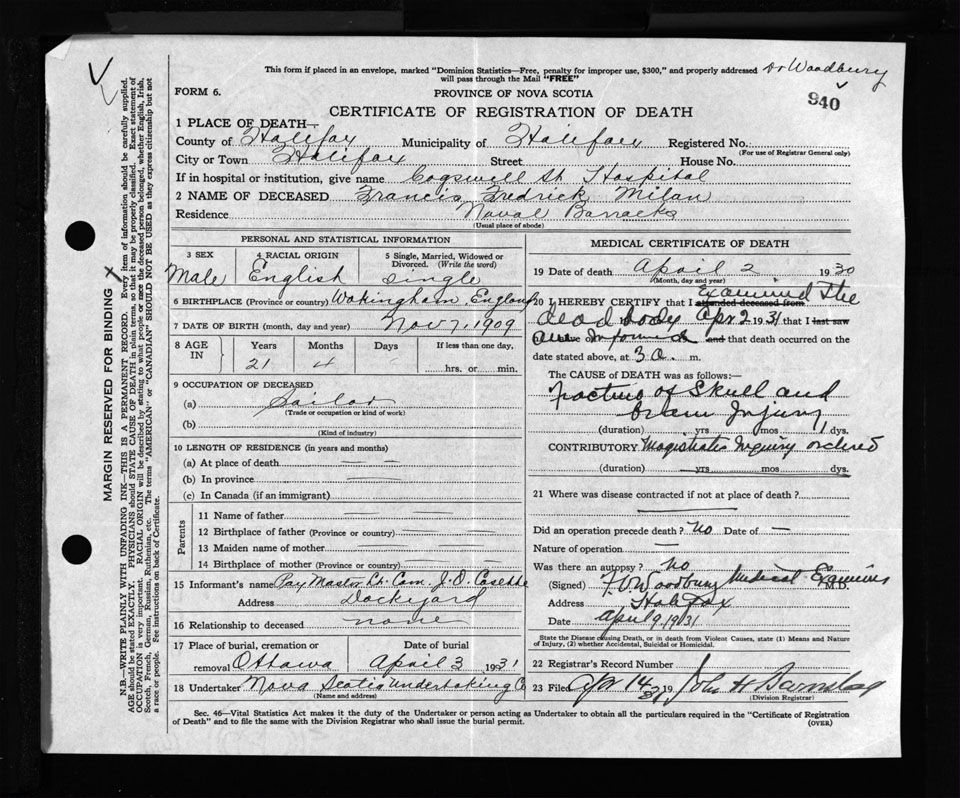 This form if placed in an envelope, marked "Dominion Statistics—Free, penalty for improper use, $300," and properly addressed
will pass through the Mail "FREE"
Dr Woodbury
940
FORM 6.
PROVINCE OF NOVA SCOTIA
CERTIFICATE OF REGISTRATION OF DEATH
1 PLACE OF DEATH—
County of Halifax Municipality of Halifax Registered No.
(For use of Registrar General only)
City or Town Halifax Street House No.
If in hospital or institution, give name Cogswell St. Hospital
2 NAME OF DECEASED Francis Fredrick Milan
Residence Naval Barracks
(Usual place of abode)
PERSONAL AND STATISTICAL INFORMATION
3 SEX 4 RACIAL ORIGIN 5 Single, Married, Widowed or Divorced. (Write the word)
Male English Single
6 BIRTHPLACE (Province or country) Wokingham, England
7 DATE OF BIRTH (month, day and year) Nov 7, 1909
8 AGE IN Years Months Days If less than one day,
21 4 hrs. or min.
9 OCCUPATION OF DECEASED
(a) Sailor
(Trade or occupation or kind of work)
(b)
(Kind of industry)
10 LENGTH OF RESIDENCE (in years and months)
(a) At place of death
(b) In province
(c) In Canada (if an immigrant)
Parents
11 Name of father
12 Birthplace of father (Province or country)
13 Maiden name of mother
14 Birthplace of mother (Province or country)
15 Informant's name Pay Master Lt. Com. J. O.
Address Dockyard
16 Relationship to deceased none
17 Place of burial, cremation or removal Date of burial
Ottawa April 3 1931
18 Undertaker Nova Scotia Undertaking Co
(Name and address)
MEDICAL CERTIFICATE OF DEATH
19 Date of death April 2 1930
(Month, day and year)
20 I HEREBY CERTIFY that I attended deceased from Examined the
dead body Apr 2 1931 that I last saw
alive and that death occurred on
date stated above, at 3 a. m.
The CAUSE of DEATH was as follows:—
fracture of Skull and
brain Injury
(duration) yrs mos 1 dys.
CONTRIBUTORY Magistrates Inquiry ordered
(duration) yrs mos dys.
21 Where was disease contracted if not at place of death?
Did an operation precede death? No Date of —
Nature of operation —
Was there an autopsy? No
(Signed) F.O. Woodbury Medical Examiner M.D.
Address Halifax
Date April 9, 1931
State the Disease causing Death, or in death from Violent Causes, state (1) Means and Nature
of Injury, (2) whether Accidental, Suicidal or Homicidal.
22 Registrar's Record Number
23 Filed Apr 14 1931 John H
(Division Registrar)
Sec. 46—Vital Statistics Act makes it the duty of the Undertaker or person acting as Undertaker to obtain all the particulars required in the "Certificate of Registration
of Death" and to file the same with the Division Registrar who shall issue the burial permit.
(OVER)
MARGIN RESERVED FOR BINDING
N.B.—WRITE PLAINLY WITH UNFADING INK—THIS IS A PERMANENT RECORD. Every item of information should be carefully supplied.
AGE should be stated EXACTLY. PHYSICIANS should STATE CAUSE OF DEATH in plain terms, so that it may be properly classified. Exact statement of
OCCUPATION is very important. RACIAL ORIGIN will be described by stating to what people or race the deceased person belonged, whether English, Irish,
Scotch, French, German, Russian, Ruthenian, etc. The terms "AMERICAN" or "CANADIAN" SHOULD NOT BE USED as they express citizenship but not
a race or people. See instructions on back of Certificate.